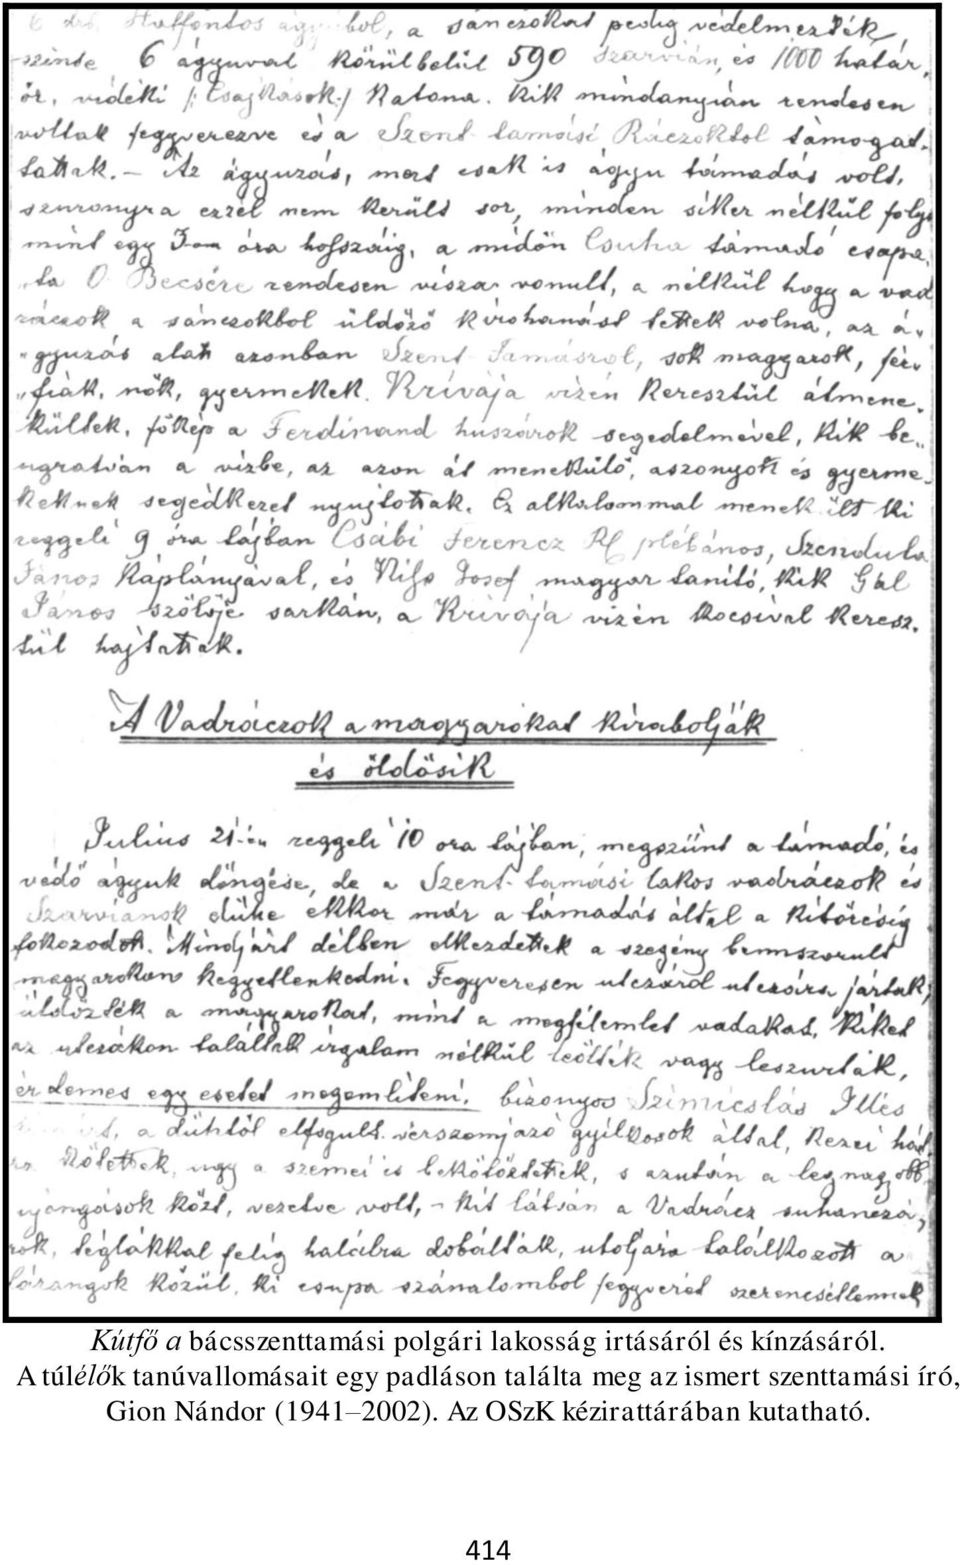 6 drb, Staffontos ágyúból, a sánczokat pedig védelmezték,
szinte 6 ágyuval körülbelül 590 szarvián, és 1000 határ„
őr, vidéki /: Csajkások :/ Katona. kik mindanyián rendesen
voltak fegyverezve és a Szent tamási Ráczoktol támogat„
tattak. – Az ágyuzás, mert csak is ágyu támadás volt,
szuronyra ezzel nem került sor, minden siker nélkül folyt
mint egy 3-om óra hoszáig, a midőn Csuha támadó csapa„
„ta O Becsére rendesen vissza vonult, a nélkül hogy a vad
ráczok a sánczokbol üldöző kirohanást tettek volna, az á„
„gyuzás alatt azonban Szent Tamásrol, sok magyarok, fér„
„fiak, nők, gyermekek. Krivája vizén keresztül átmene„
kültek, főkép a Ferdinand huszárok segedelmével, kik be„
ugratván a vizbe, az azon át menekülő, aszonyok és gyerme„
keknek segédkezet nyujtottak. Ez alkalommal menekült ki
reggeli 9 óra tájban Csábi Ferencz plébános, Szendula
János Káplányával, és Josef magyar tanitó, kik Gál
János szőlője sarkán, a Krivája vizén kocsival keresz„
tül hajtattak.
A Vadráczok a magyarokat kirabolják
és öldösik
Julius 21-én reggeli 10 ora tájban, megszünt a támadó, és
védő ágyuk döngése, de a Szent-tamási lakos vadráczok és
Szarvianok dühe ekkor már a támadás által a kitörésig
fokozodott. Mindjárt délben elkezdettek a szegény bennszorult
magyarokon kegyetlenkedni. Fegyveresen utczáról utczára jártak,
üldözték a magyarokat, mint a megfélemlet vadakat, kiket
az utczákon találtak irgalom nélkül leölték vagy leszurták,
érdemes egy esetet megemliteni, bizonyos Szimicslás Illés
a dühtől elfogult vérszomjazó gyilkosok által, kezei hát„
ra kötettek, ugy a szemei is bekötöztettek, s azután a legnagyobb
ujongások közt, vezetve volt, – kit látván a Vadrácz suhanczá„
rok, téglákkal felig halálra dobálták, utoljára találkozott a
bárangok közül, ki csupa szánalombol fegyverét szerencsétlennek
Kútfő a bácsszenttamási polgári lakosság irtásáról és kínzásáról.
A túlélők tanúvallomásait egy padláson találta meg az ismert szenttamási író,
Gion Nándor (1941–2002). Az OSzK kézirattárában kutatható.
414